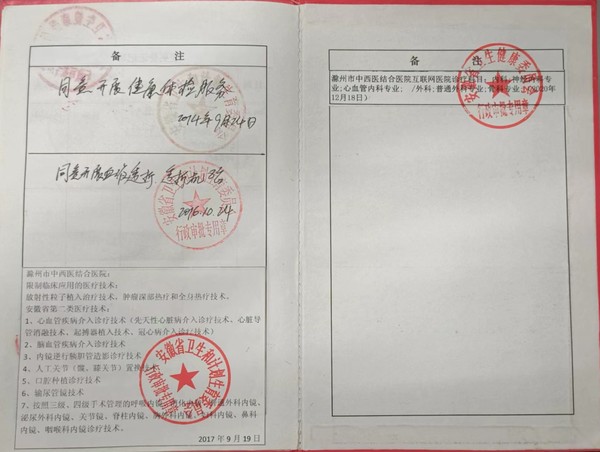 备 注
同意开展健康体检服务
2014年9月24日
同意开展血液透析 透析机13台
2016.10.24.
安徽省卫生和计划生育委员会
行政审批专用章
滁州市中西医结合医院：
限制临床应用的医疗技术：
放射性粒子植入治疗技术、肿瘤深部热疗和全身热疗技术。
安徽省第二类医疗技术：
1、心血管疾病介入诊疗技术（先天性心脏病介入诊疗技术、心脏导
管消融技术、起搏器植入技术、冠心病介入诊疗技术）
2、脑血管疾病介入诊疗技术
3、内镜逆行胰胆管造影诊疗技术
4、人工关节（髋、膝关节）置换技术
5、口腔种植诊疗技术
6、输尿管镜技术
7、按照三级、四级手术管理的呼吸内镜、消化内镜、普通外科内镜、
泌尿外科内镜、关节镜、脊柱内镜、胸外科内镜、妇科内镜、鼻科
内镜、咽喉科内镜诊疗技术。
安徽省卫生和计划生育委员会
行政审批专用章
2017 年 9 月 19 日
备 注
滁州市中西医结合医院互联网医院诊疗科目：内科;神经内科专
业;心血管内科专业; /外科;普通外科专业;骨科专业。（2020年
12月18日）
安徽省卫生健康委员会
行政审批专用章